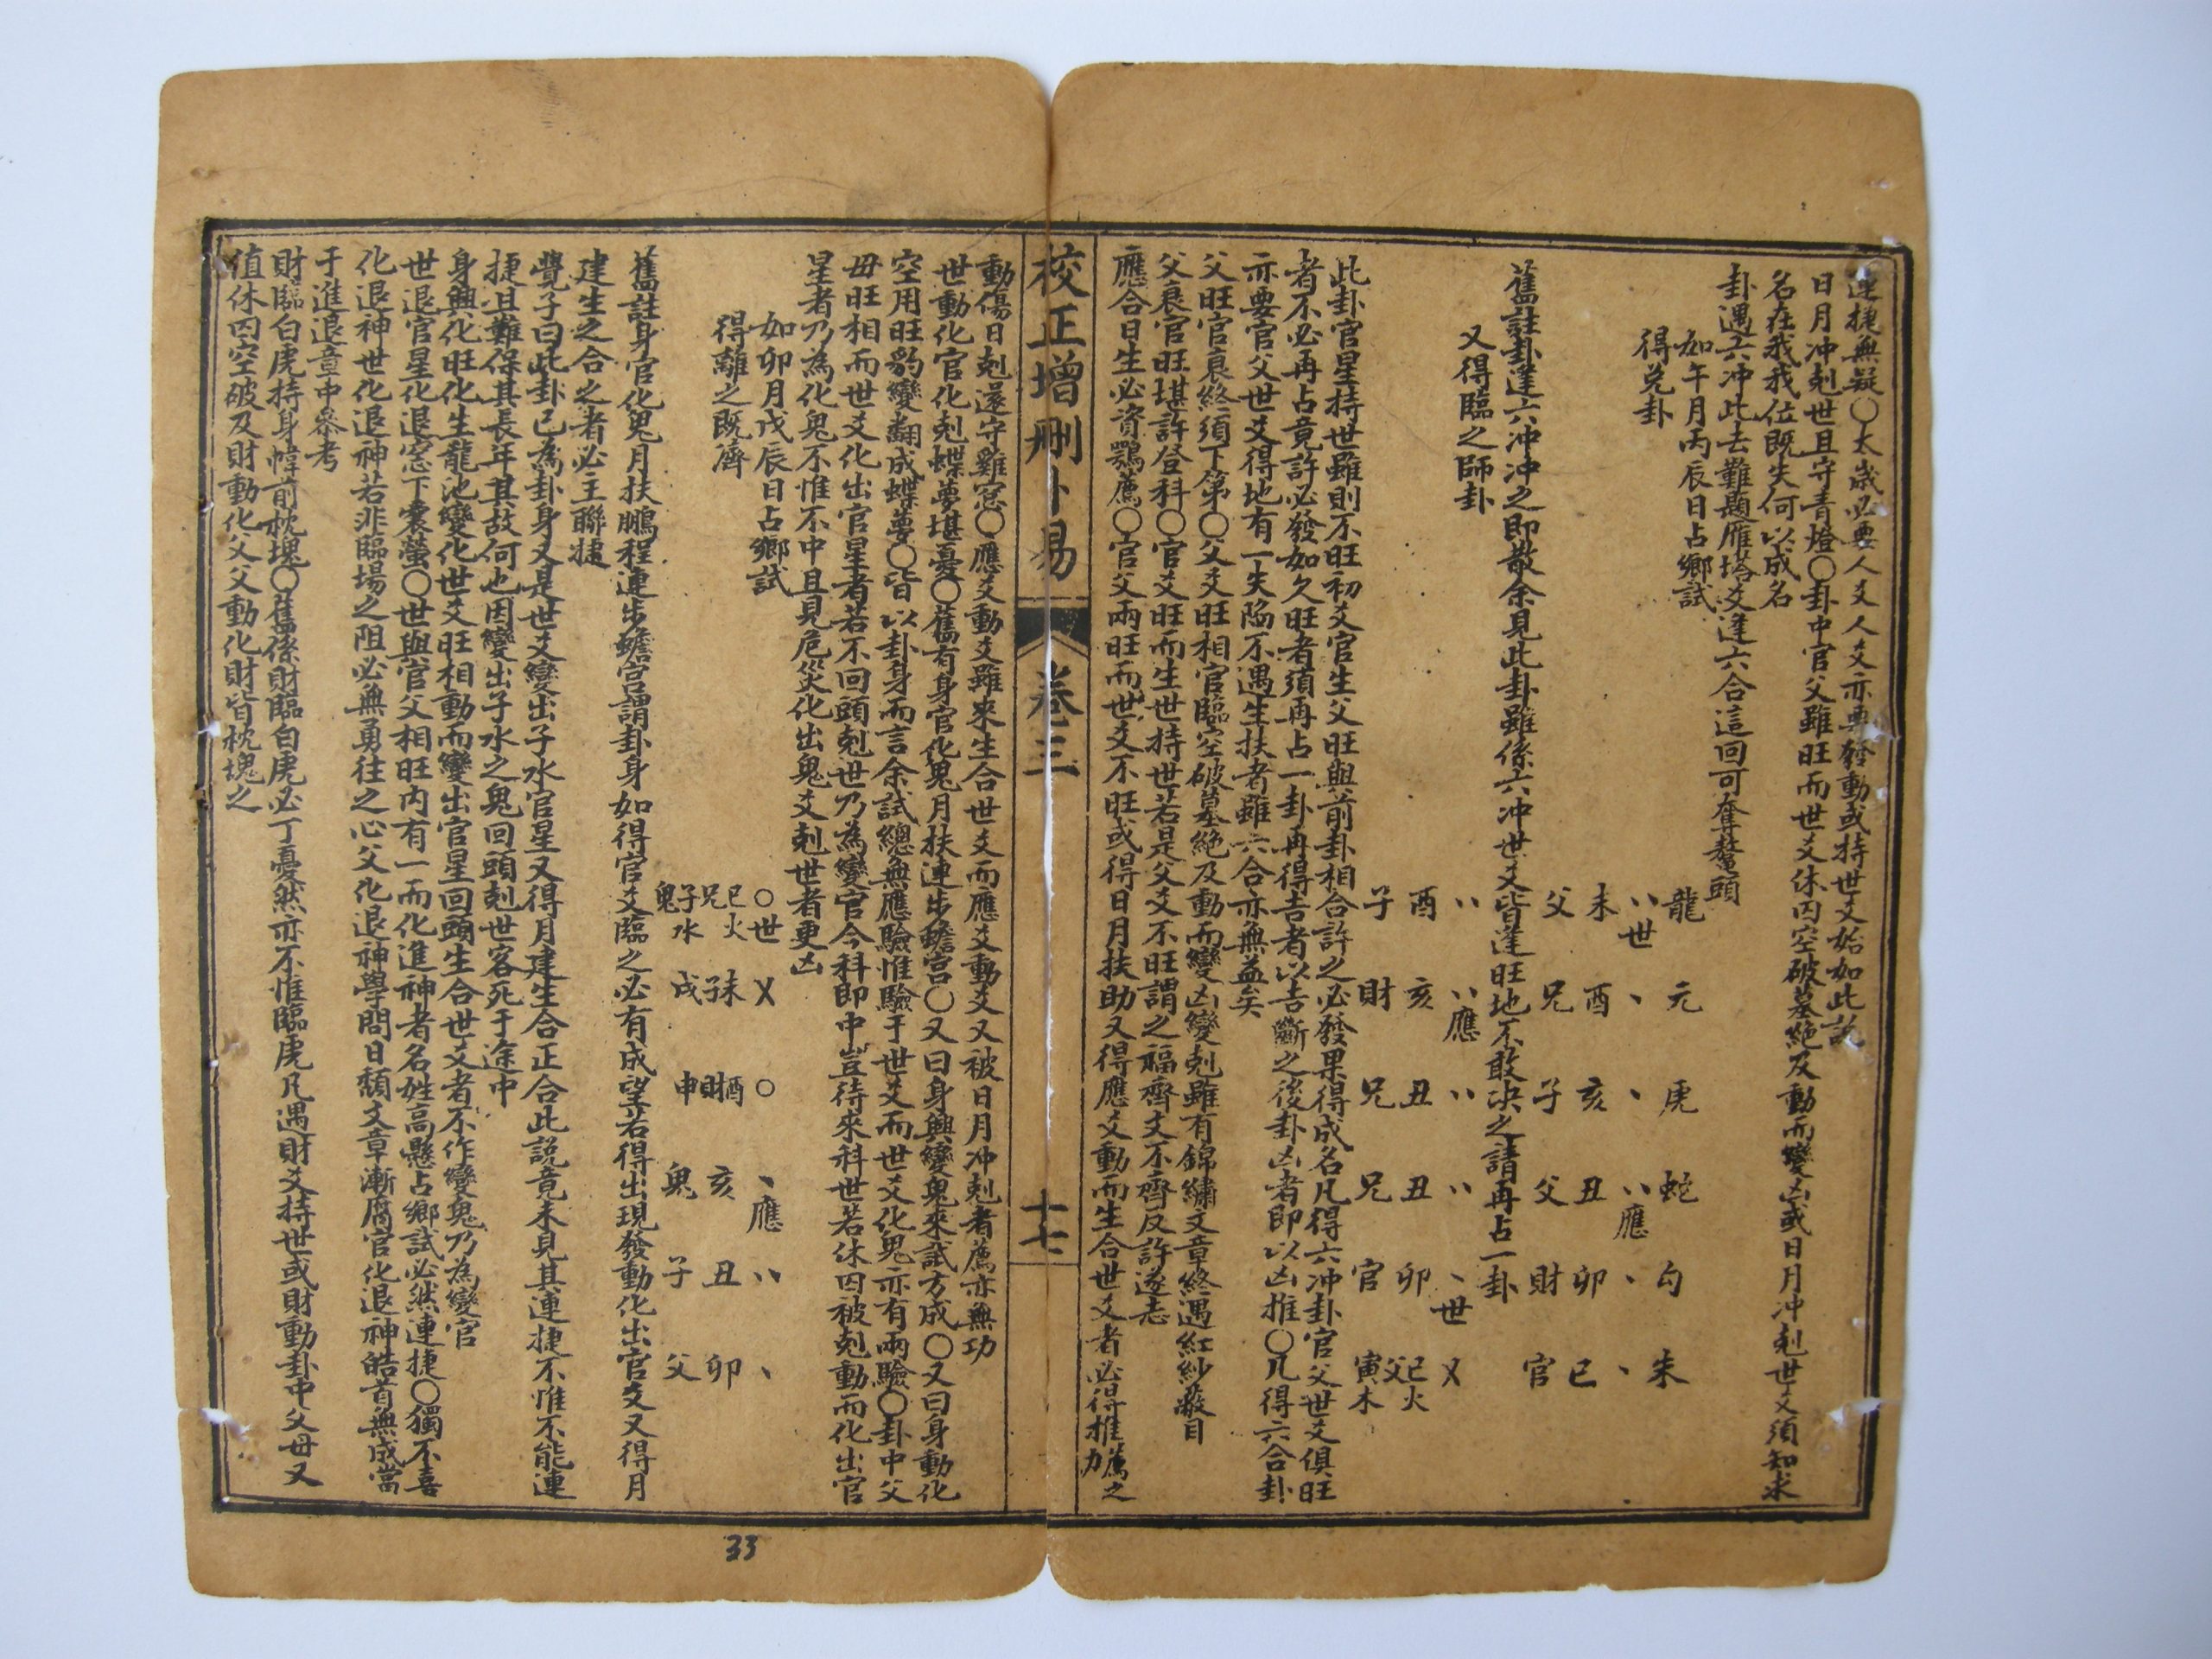 連捷無疑○太歲必要人爻人爻亦要發動或持世爻始如此說
日月冲剋世且守青燈○卦中官父雖旺而世爻休囚空破墓絕及動而變凶或日月冲剋世爻須知求
名在我我位既失何以成名
卦遇六冲此去難題雁塔爻逢六合這回可奪鰲頭
如午月丙辰日占鄉試
得兌卦
龍 元 虎 蛇 勾 朱
〃世 、 、 〃應 、 、
未 酉 亥 丑 卯 巳
父 兄 子 父 財 官
舊註卦逢六冲冲之即散余見此卦雖係六冲世爻皆逢旺地不敢决之請再占一卦
又得臨之師卦
〃 〃應 〃 〃 、世 乂
酉 亥 丑 丑 卯 巳火
子 財 兄 兄 官 父寅木
此卦官星持世雖則不旺初爻官生父旺與前卦相合許之必發果得成名凡得六冲卦官父世爻俱旺
者不必再占竟許必發如久旺者須再占一卦再得吉者以吉斷之後卦凶者即以凶推○凡得六合卦
亦要官父世爻得地有一失陷不遇生扶者雖六合亦無益矣
父旺官衰終須下第○父爻旺相官臨空破墓絕及動而變凶變剋雖有錦繡文章終遇紅紗蔽目
父衰官旺堪許登科○官爻旺而生世持世若是父爻不旺謂之福齊文不齊反許遂志
應合日生必資鶚薦○官父兩旺而世爻不旺或得日月扶助又得應爻動而生合世爻者必得推薦之力
校正增刪卜易
卷三
十七
動傷日剋還守雞窓○應爻動爻雖來生合世爻而應爻動爻又被日月冲剋者薦亦無功
世動化官化剋蝶夢堪憂○舊有身官化鬼月扶連步蟾宮○又曰身興變鬼來試方成○又曰身動化
空用旺豹變翻成蝶夢○皆以卦身而言余試總無應驗惟驗于世爻而世爻化鬼亦有兩驗○卦中父
毋旺相而世爻化出官星者若不回頭剋世乃為變官今科即中豈待來科世若休囚被剋動而化出官
星者乃為化鬼不惟不中且見危災化出鬼爻剋世者更凶
如卯月戊辰日占鄉試
得離之既濟
○世 乂 ○ 、應 〃 、
兄巳火 子未 財酉 亥 丑 卯
鬼子水 戌 申 鬼 子 父
舊註身官化鬼月扶鵬程連步蟾宮謂卦身如得官爻臨之必有成望若得出現發動化出官爻又得月
建生之合之者必王聯捷
覺子曰此卦已為卦身又是世爻變出子水官星又得月建生合正合此說竟未見其連捷不惟不能連
捷且難保其長年其故何也因變出子水之鬼回頭剋世客死于途中
身興化旺化生龍池變化世爻旺相動而變出官星回頭生合世爻者不作變鬼乃為變官
世退官星化退窓下囊螢○世與官父相旺內有一而化進神者名姓高懸占鄉試必然連捷○獨不喜
化退神世化退神若非臨場之阻必無勇往之心父化退神學問日頹文章漸腐官化退神皓首無成當
于進退章中參考
財臨白虎持身幃前枕塊○舊係財臨白虎必丁憂然亦不惟臨虎凡遇財爻持世或財動卦中父毋又
值休囚空破及財動化父父動化財皆枕塊之
33